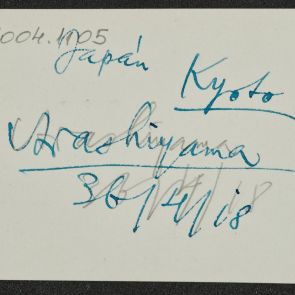 2004.1105
Japán
Kyoto
Arashiyama
30/4/18